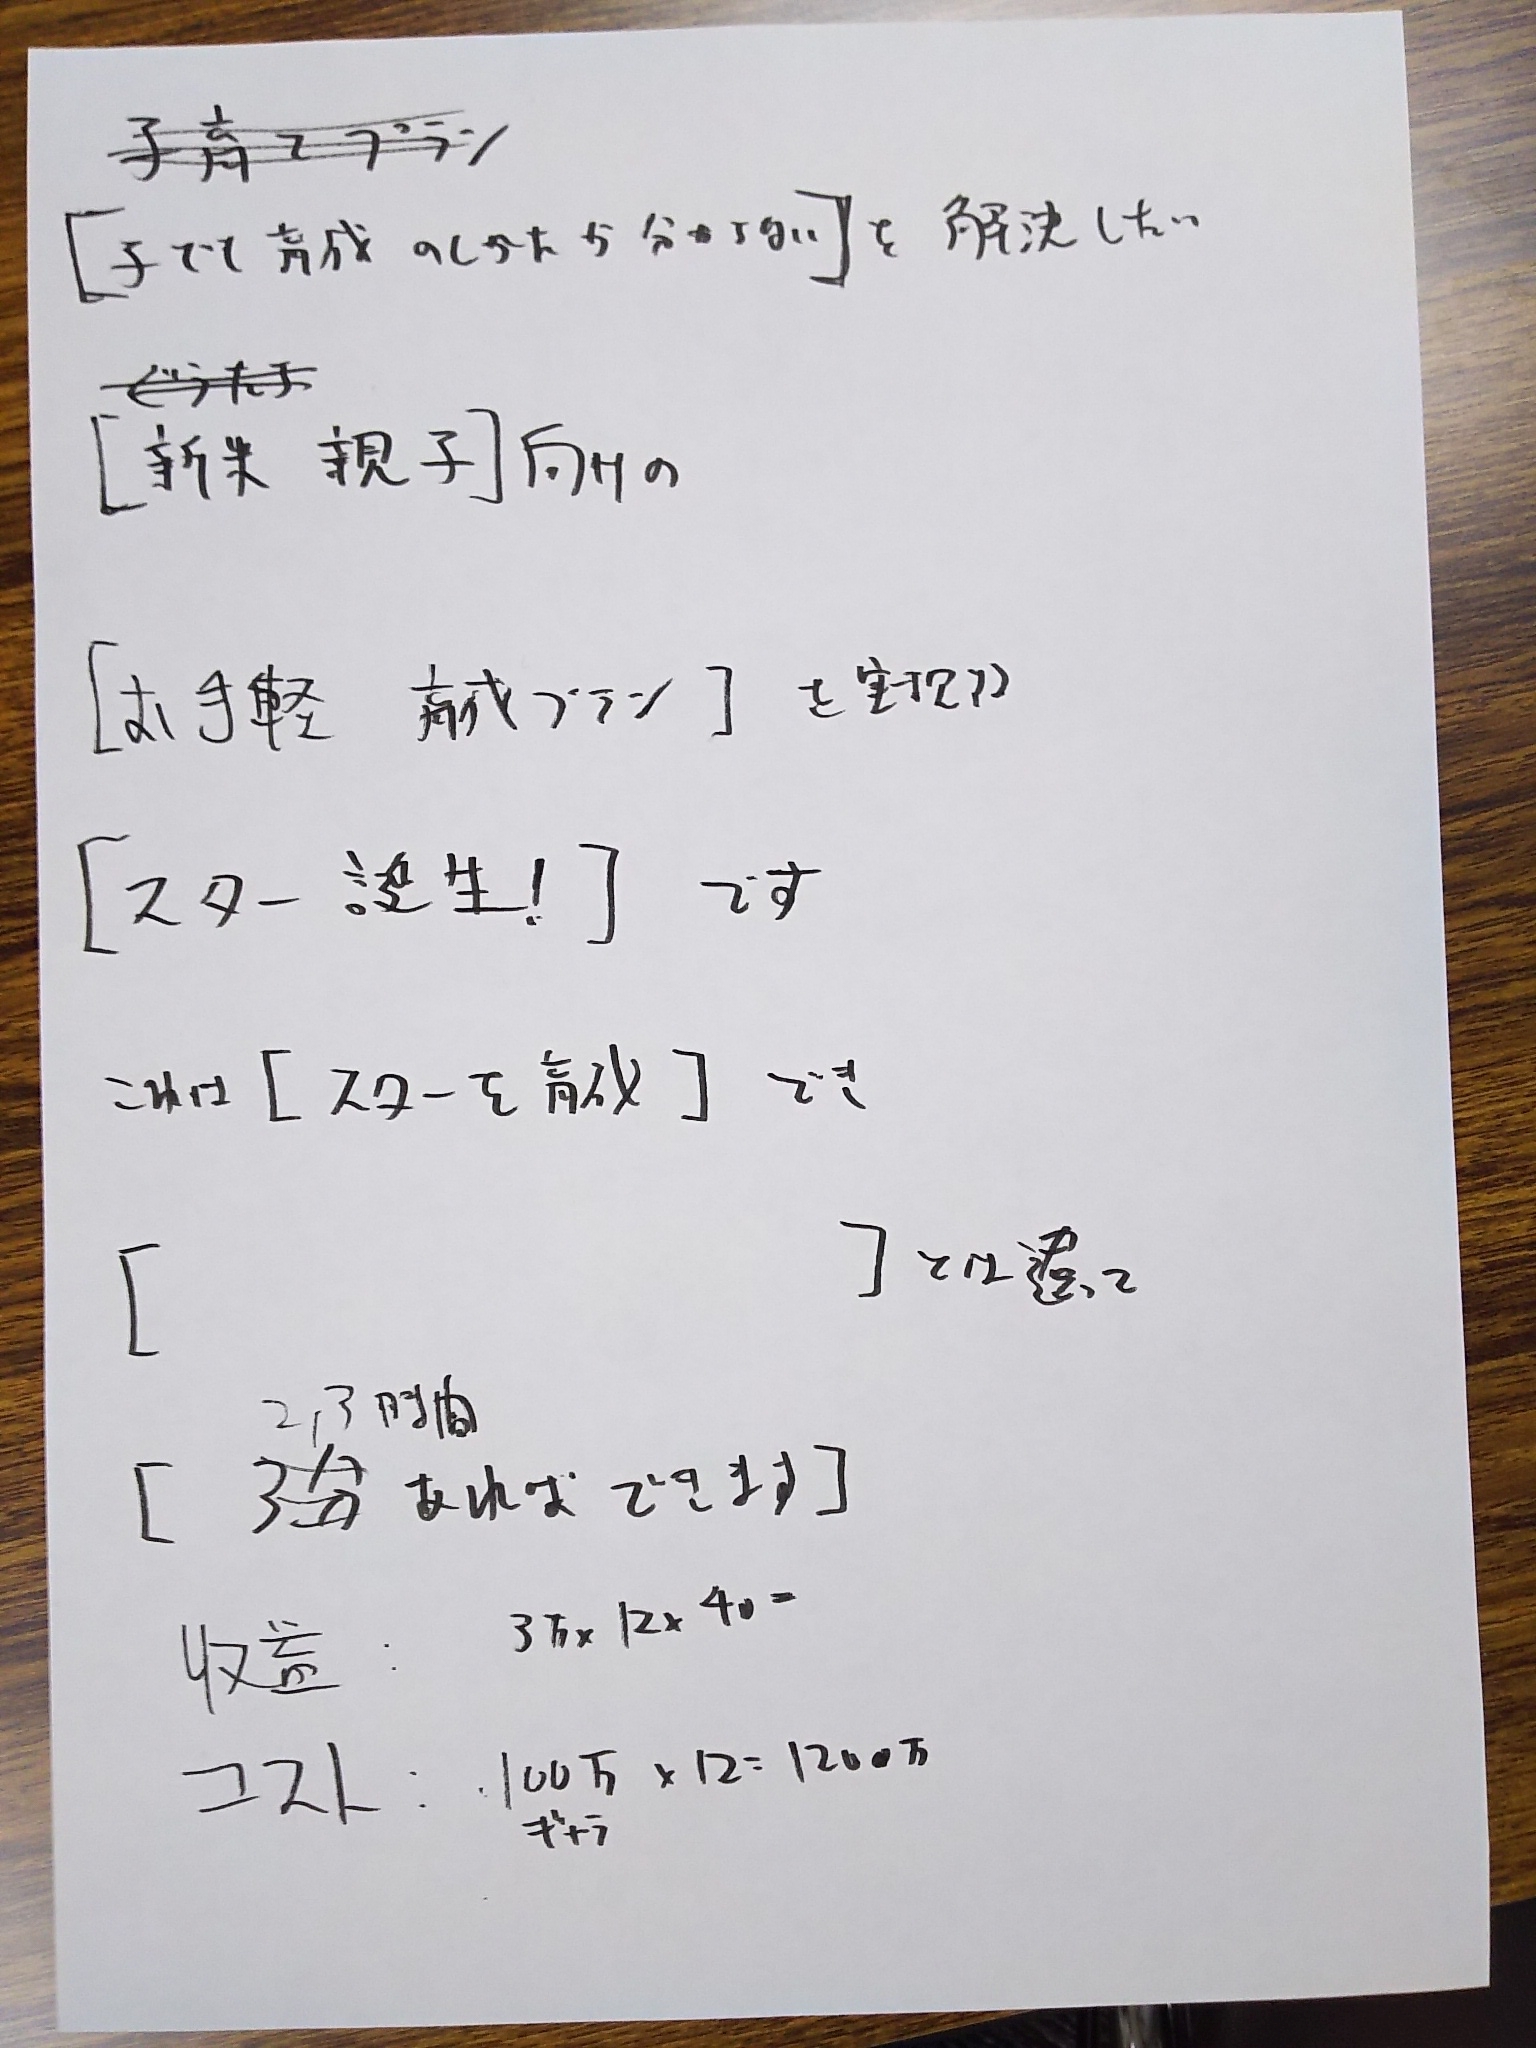 子育てプラン
[子でて育成のしかたが分からない]を解決したい
[新米 親子]向けの
[お手軽 育成プラン]を実現する
[スター誕生!]です
これは[スターを育成]でき
[ ]とは違って
2,3時間
[3分あればできます]
収益: 3万×12×40=
コスト: 100万×12=1200万
ギャラ